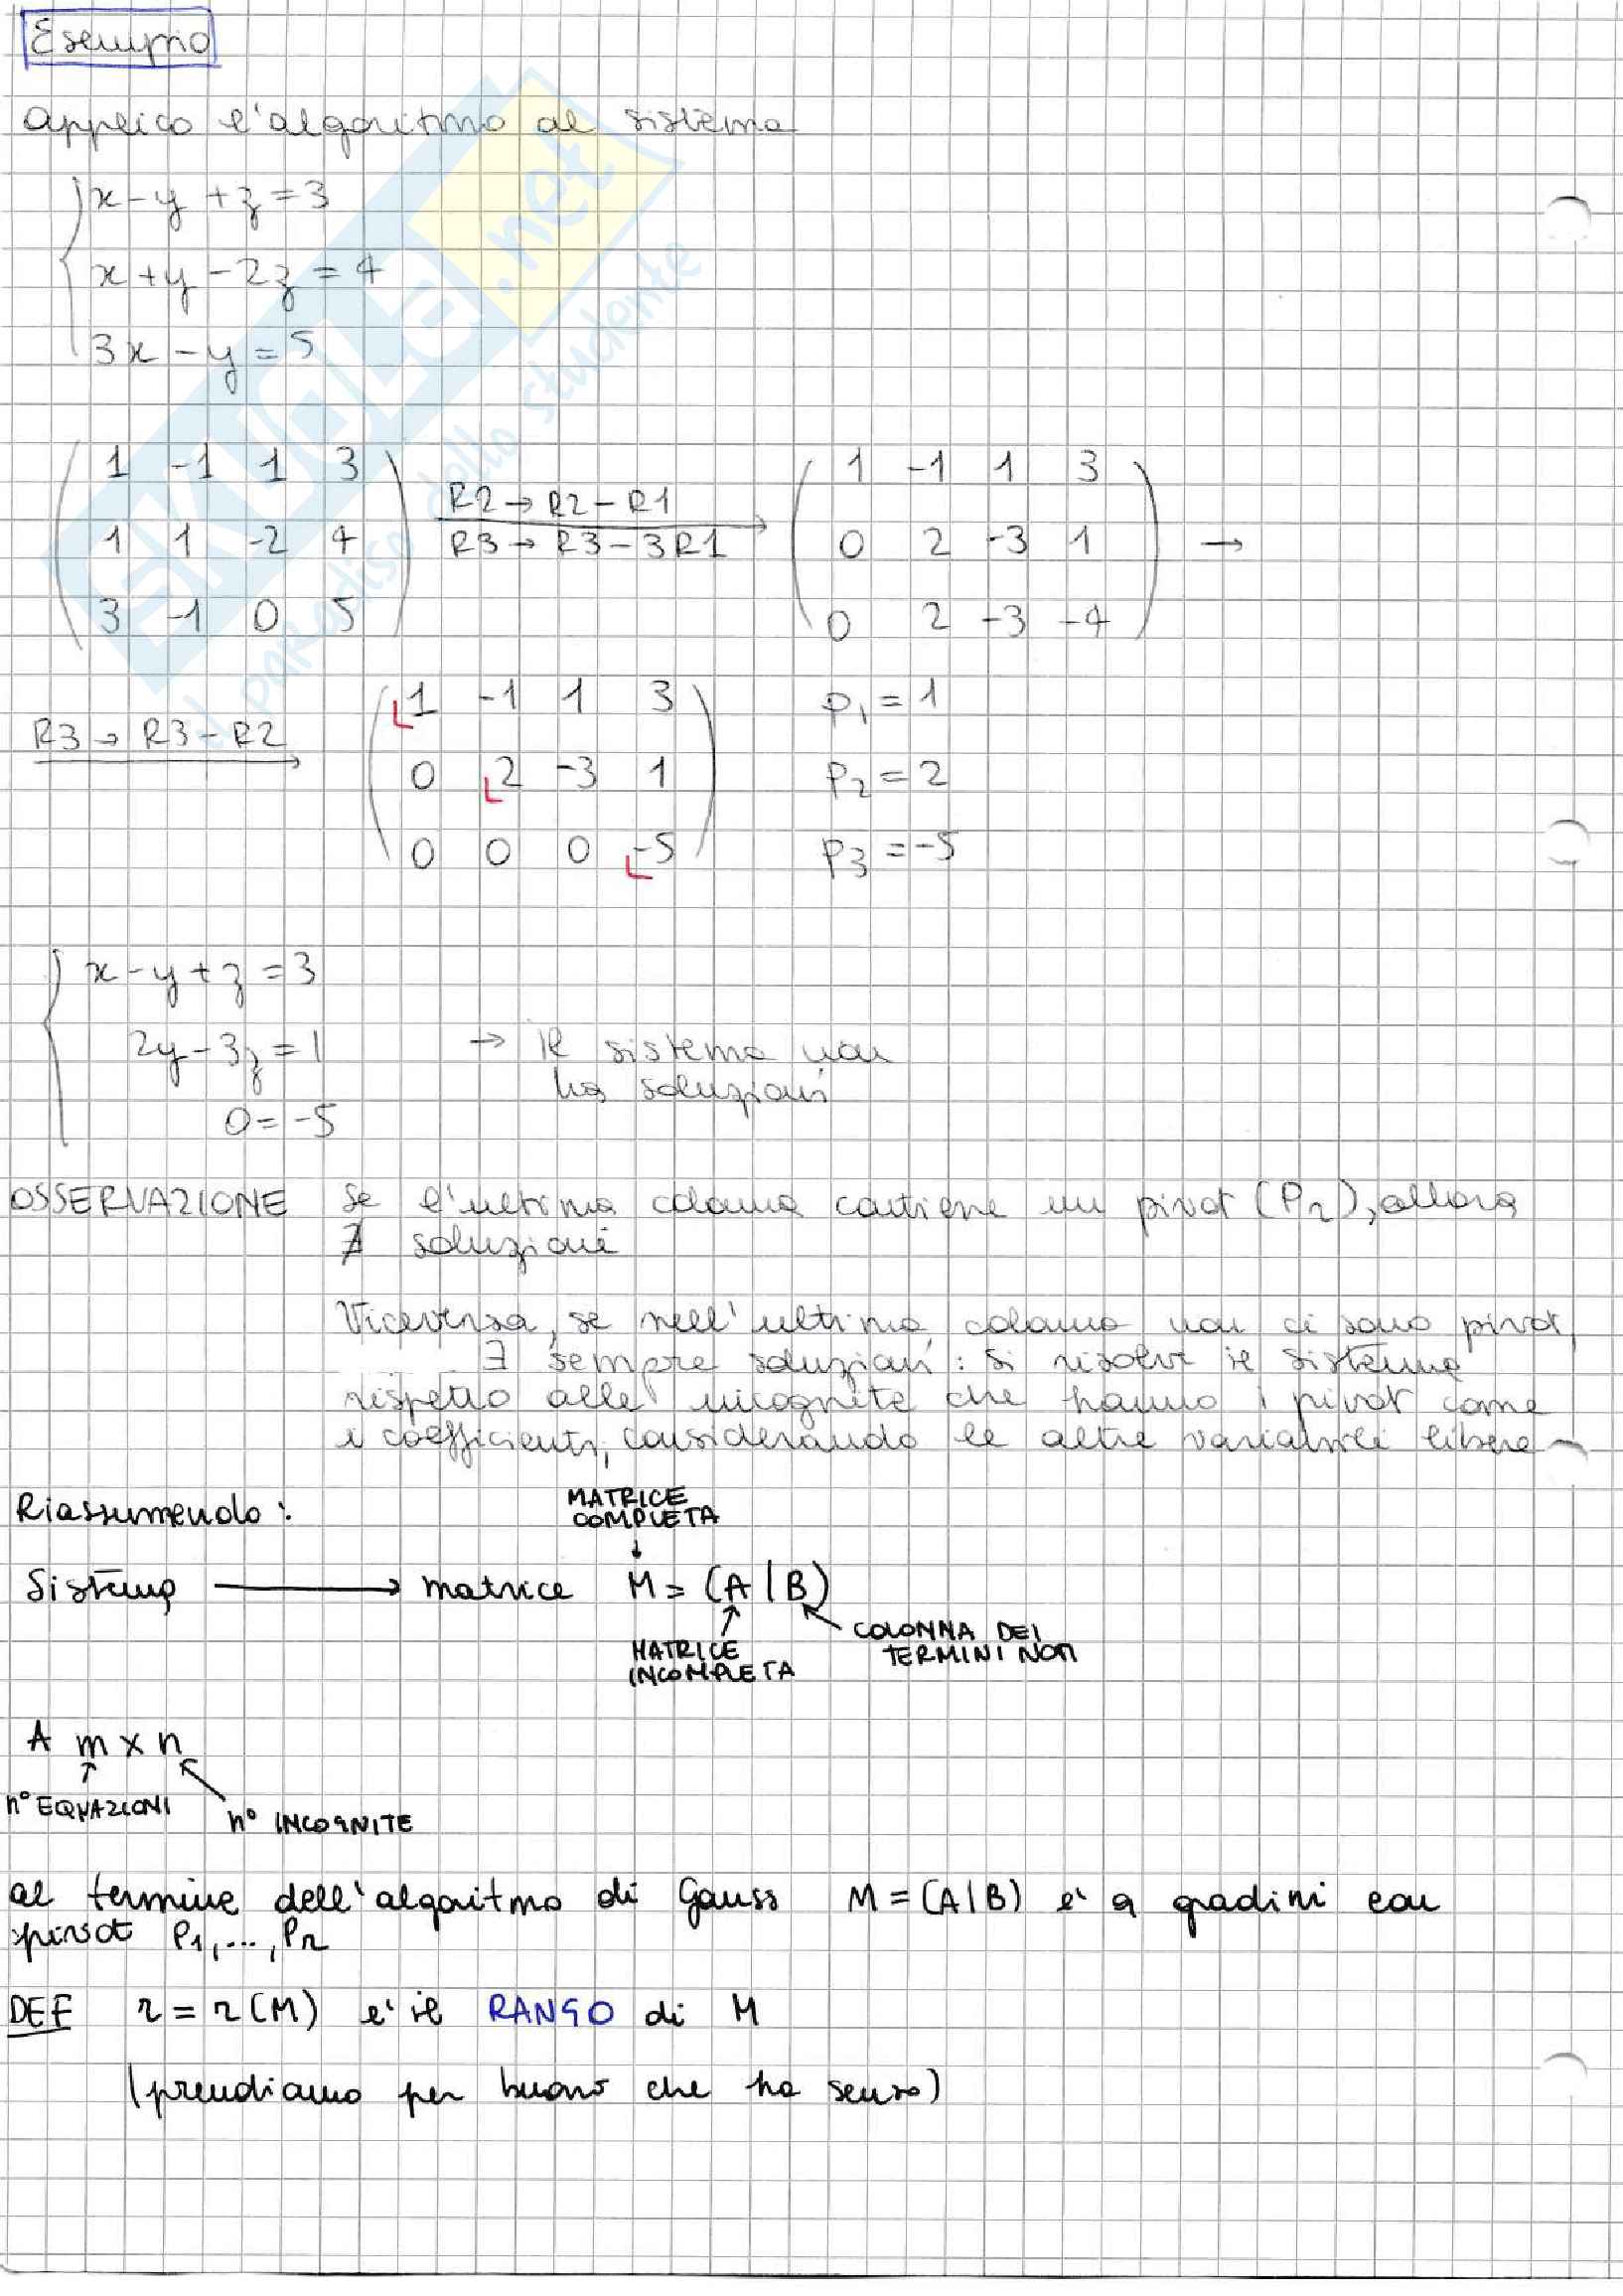 Esempio
Applico l'algoritmo al sistema
x - y + z = 3
x + y - 2z = 4
3x - y = 5
1 -1 1 3
1 1 -2 4
3 -1 0 5
R2 → R2 - R1
R3 → R3 - 3R1
1 -1 1 3
0 2 -3 1
0 2 -3 -4
→
R3 → R3 - R2
1 -1 1 3
0 2 -3 1
0 0 0 -5
p1 = 1
p2 = 2
p3 = -5
x - y + z = 3
2y - 3z = 1
0 = -5
→ il sistema non
ha soluzioni
OSSERVAZIONE Se l'ultima colonna contiene un pivot (Pr), allora
∄ soluzioni
Viceversa, se nell'ultima colonna non ci sono pivot,
∃ sempre soluzioni: si risolve il sistema
rispetto alle incognite che hanno i pivot come
coefficienti, considerando le altre variabili libere
Riassumendo:
MATRICE
COMPLETA
↓
Sistema → matrice M = (A | B)
MATRICE
INCOMPLETA
COLONNA DEI
TERMINI NOTI
A m x n
n° EQUAZIONI
n° INCOGNITE
al termine dell'algoritmo di Gauss M = (A|B) e' a gradini con
pivot P1,...,Pr
DEF r = r(M) e' il RANGO di M
(prendiamo per buono che ha senso)
SKUOLA.net
il paradiso dello studente